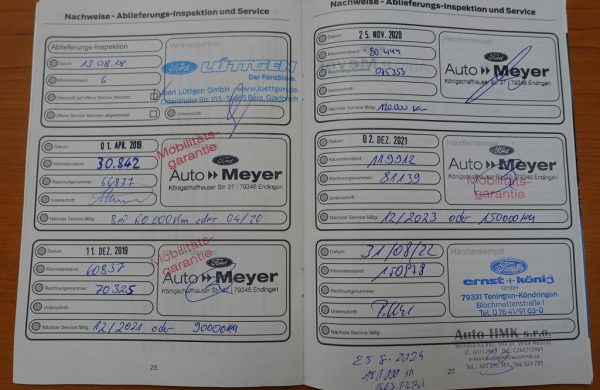 Nachweise - Ablieferungs-Inspektion und Service
Ablieferungs-Inspektion
Vertragspartner
Datum:
13.08.18
Kilometerstand:
6
Überprüft auf offene Service-Aktionen
Offene Service-Aktionen abgearbeitet
Ford LÜTTGEN
Der FordStore.
Jean Lüttgen GmbH · www.luettgen.de
Odenthaler Str. 153 · 51465 Berg. Gladbach
Datum:
01. APR. 2019
Kilometerstand:
30.842
Rechnungsnummer:
60877
Unterschrift:
Nächste Service fällig:
Bei 60.000Km oder 04/20
Mobilitäts-
garantie
Ford
Auto Meyer
Königschaffhauser Str. 27 | 79346 Endingen
Datum:
11. DEZ. 2019
Kilometerstand:
60837
Rechnungsnummer:
70325
Unterschrift:
Nächste Service fällig:
12/2021 oder 90000km
Mobilitäts-
garantie
Ford
Auto Meyer
Königschaffhauser Str. 27 | 79346 Endingen
26
Nachweise - Ablieferungs-Inspektion und Service
Datum:
25. NOV. 2020
Kilometerstand:
Rechnungsnummer:
Unterschrift:
Nächste Service fällig:
120000 km
Händlerstempel
Ford
Auto Meyer
Königschaffhauser Str. 27 | 79346 Endingen
Datum:
02. DEZ. 2021
Kilometerstand:
119912
Rechnungsnummer:
81139
Unterschrift:
Nächste Service fällig:
12/2023 oder 150000km
Händlerstempel
Ford
Auto Meyer
Königschaffhauser Str. 27 | 79346 Endingen
Mobilitäts-
garantie
Datum:
31/08/22
Kilometerstand:
150978
Rechnungsnummer:
Unterschrift:
Nächste Service fällig:
Händlerstempel
Ford
ernst+könig
GmbH
79331 Teningen-Köndringen
Blochmattenstraße 1
Tel. 0 76 41/91 63-0
Auto HMK s.r.o.
25.8.2024
27